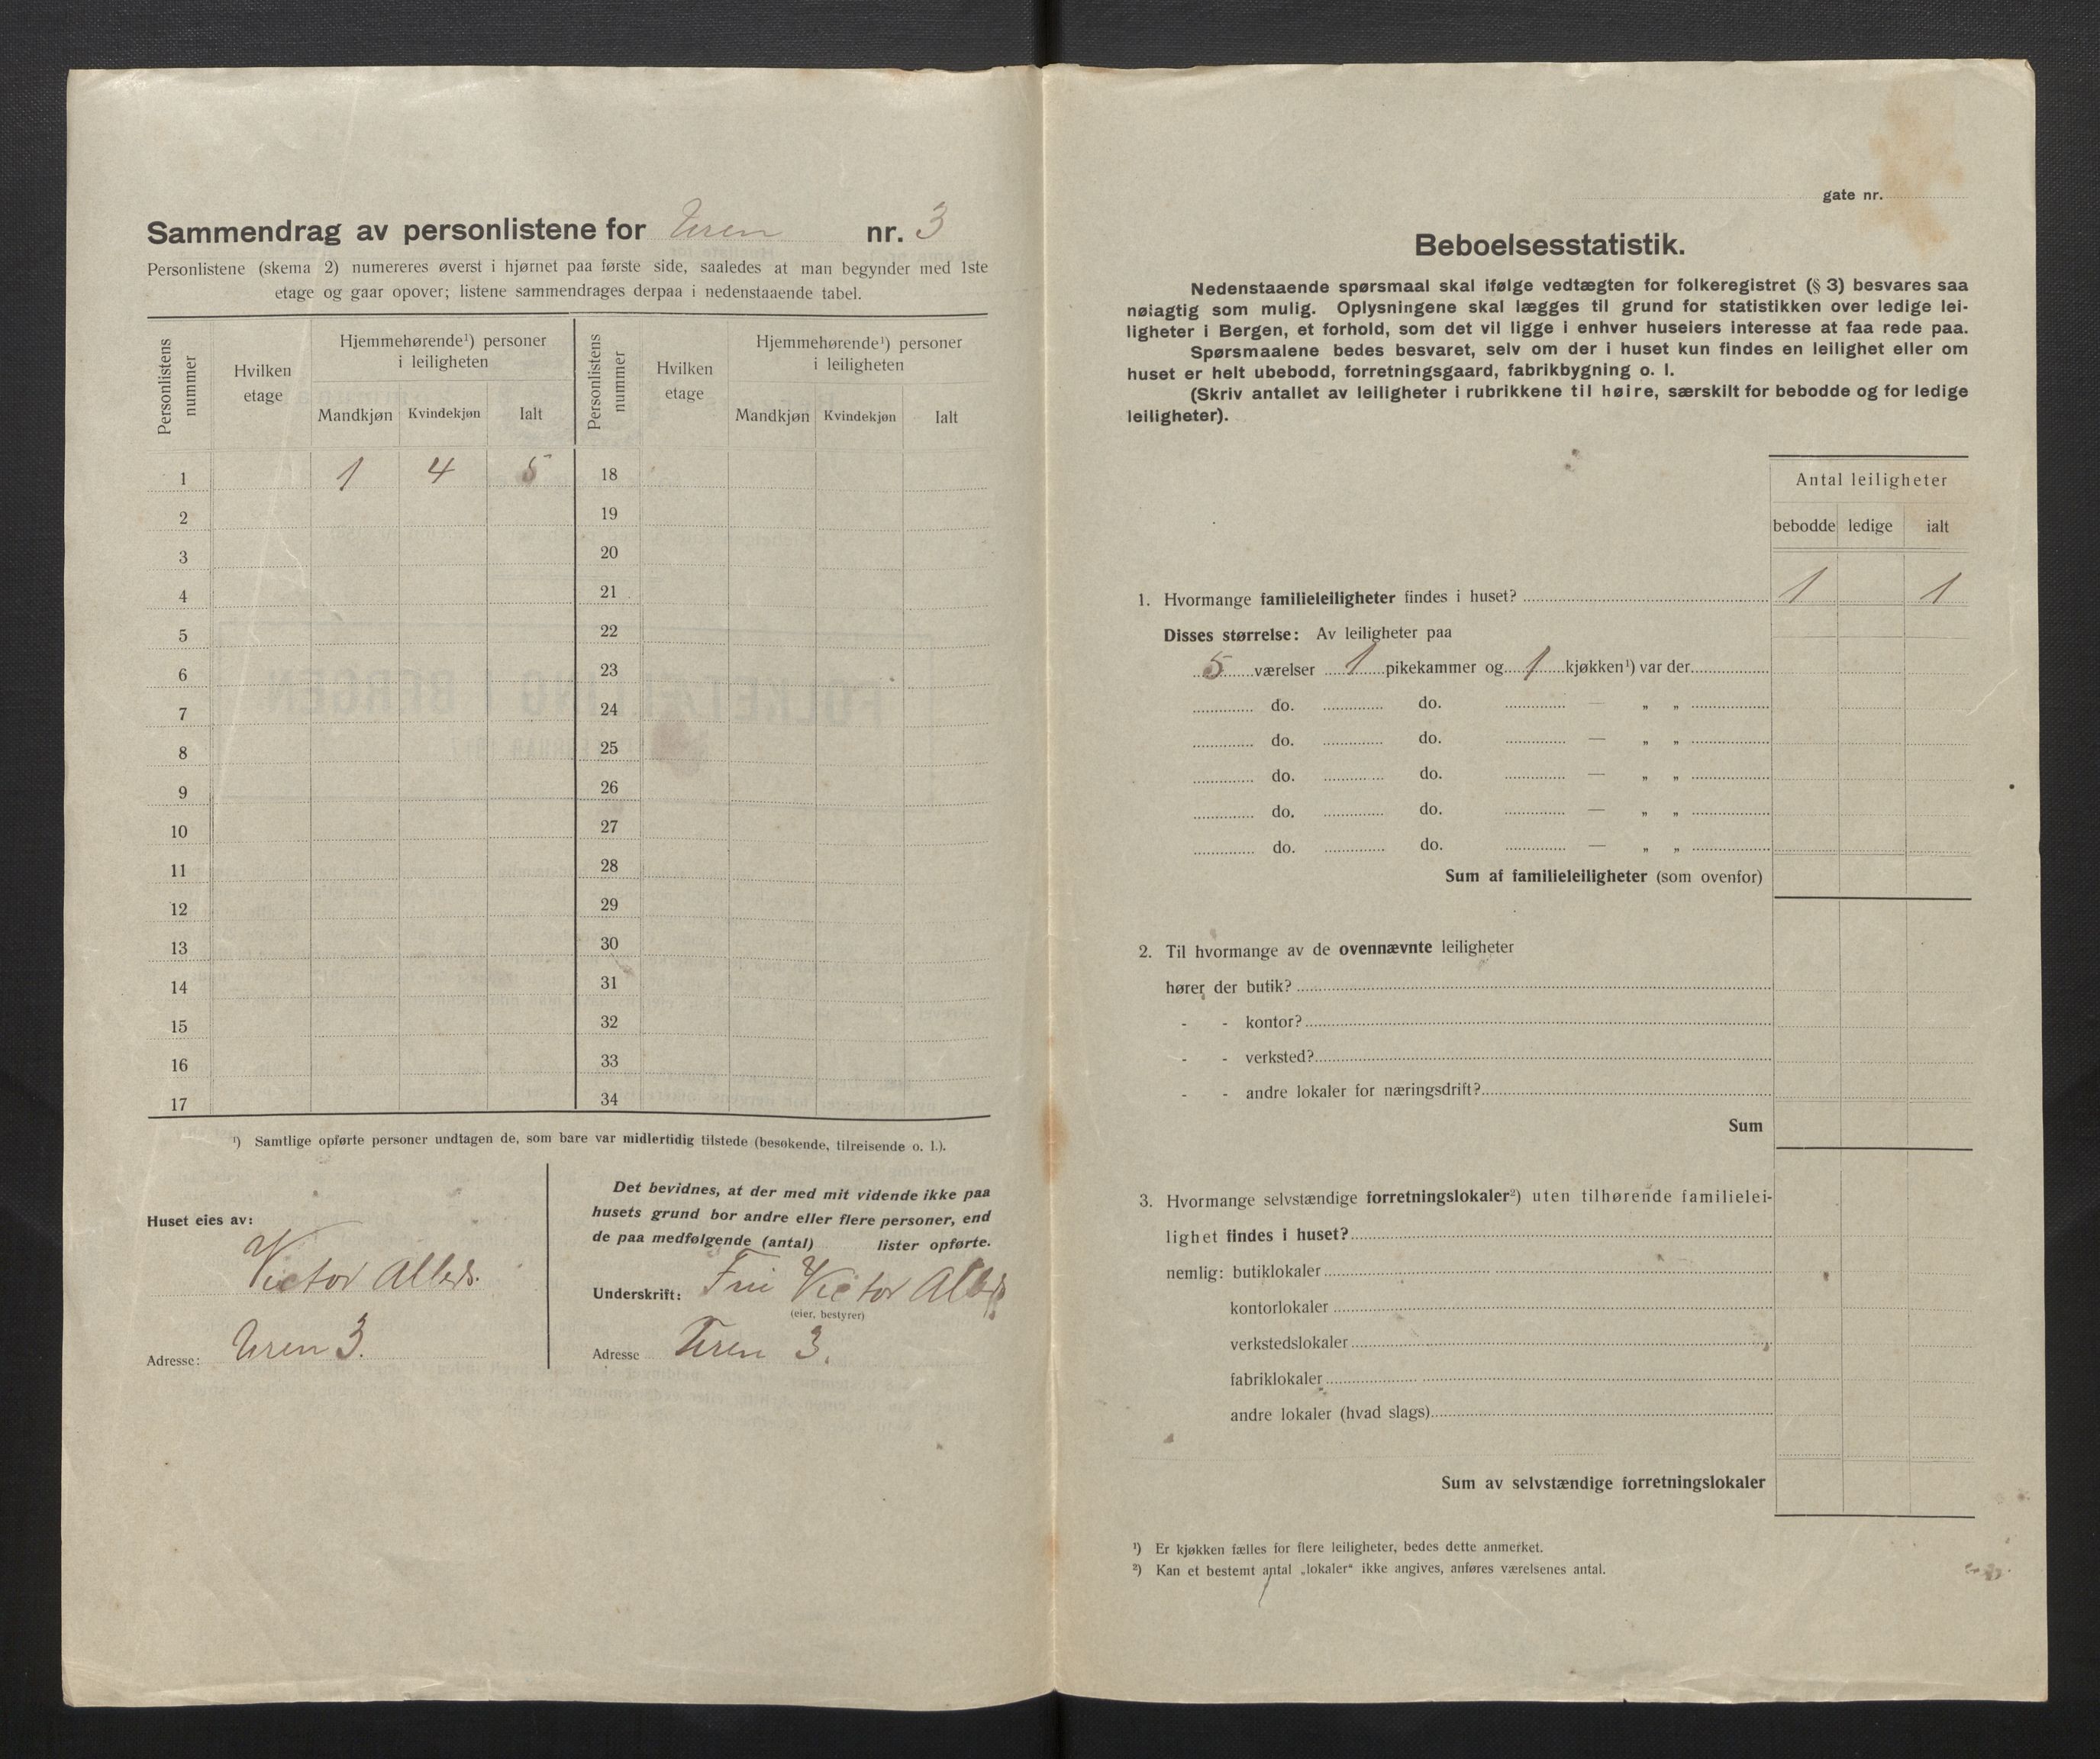 Sammendrag av personlistene for Uren nr. 3
Personlistene (skema 2) numereres øverst i hjørnet paa første side, saaledes at man begynder med 1ste
etage og gaar opover; listene sammendrages derpaa i nedenstaaende tabel.
Personlistens nummer
Hvilken etage
Hjemmehørende¹) personer i leiligheten
Mandkjøn Kvindekjøn Ialt
Personlistens nummer
Hvilken etage
Hjemmehørende¹) personer i leiligheten
Mandkjøn Kvindekjøn Ialt
1 1 4 5 18
2 19
3 20
4 21
5 22
6 23
7 24
8 25
9 26
10 27
11 28
12 29
13 30
14 31
15 32
16 33
17 34
¹) Samtlige opførte personer undtagen de, som bare var midlertidig tilstede (besøkende, tilreisende o. l.).
Huset eies av:
Victor Allers.
Adresse: Uren 3.
Det bevidnes, at der med mit vidende ikke paa
husets grund bor andre eller flere personer, end
de paa medfølgende (antal) lister opførte.
Underskrift: Victor
(eier, bestyrer)
Adresse Uren 3.
gate nr.
Beboelsesstatistik.
Nedenstaaende spørsmaal skal ifølge vedtægten for folkeregistret (§ 3) besvares saa
nøiagtig som mulig. Oplysningene skal lægges til grund for statistikken over ledige lei-
ligheter i Bergen, et forhold, som det vil ligge i enhver huseiers interesse at faa rede paa.
Spørsmaalene bedes besvaret, selv om der i huset kun findes en leilighet eller om
huset er helt ubebodd, forretningsgaard, fabrikbygning o. l.
(Skriv antallet av leiligheter i rubrikkene til høire, særskilt for bebodde og for ledige
leiligheter).
Antal leiligheter
bebodde ledige ialt
1. Hvormange familieleiligheter findes i huset? 1 1
Disses størrelse: Av leiligheter paa
5 værelser 1 pikekammer og 1 kjøkken¹) var der
do. do. — „ „
do. do. — „ „
do. do. — „ „
do. do. — „ „
do. do. — „ „
Sum af familieleiligheter (som ovenfor)
2. Til hvormange av de ovennævnte leiligheter
hører der butik?
- - kontor?
- - verksted?
- - andre lokaler for næringsdrift?
Sum
3. Hvormange selvstændige forretningslokaler²) uten tilhørende familielei-
lighet findes i huset?
nemlig: butiklokaler
kontorlokaler
verkstedslokaler
fabriklokaler
andre lokaler (hvad slags)
Sum av selvstændige forretningslokaler
¹) Er kjøkken fælles for flere leiligheter, bedes dette anmerket.
²) Kan et bestemt antal „lokaler“ ikke angives, anføres værelsenes antal.